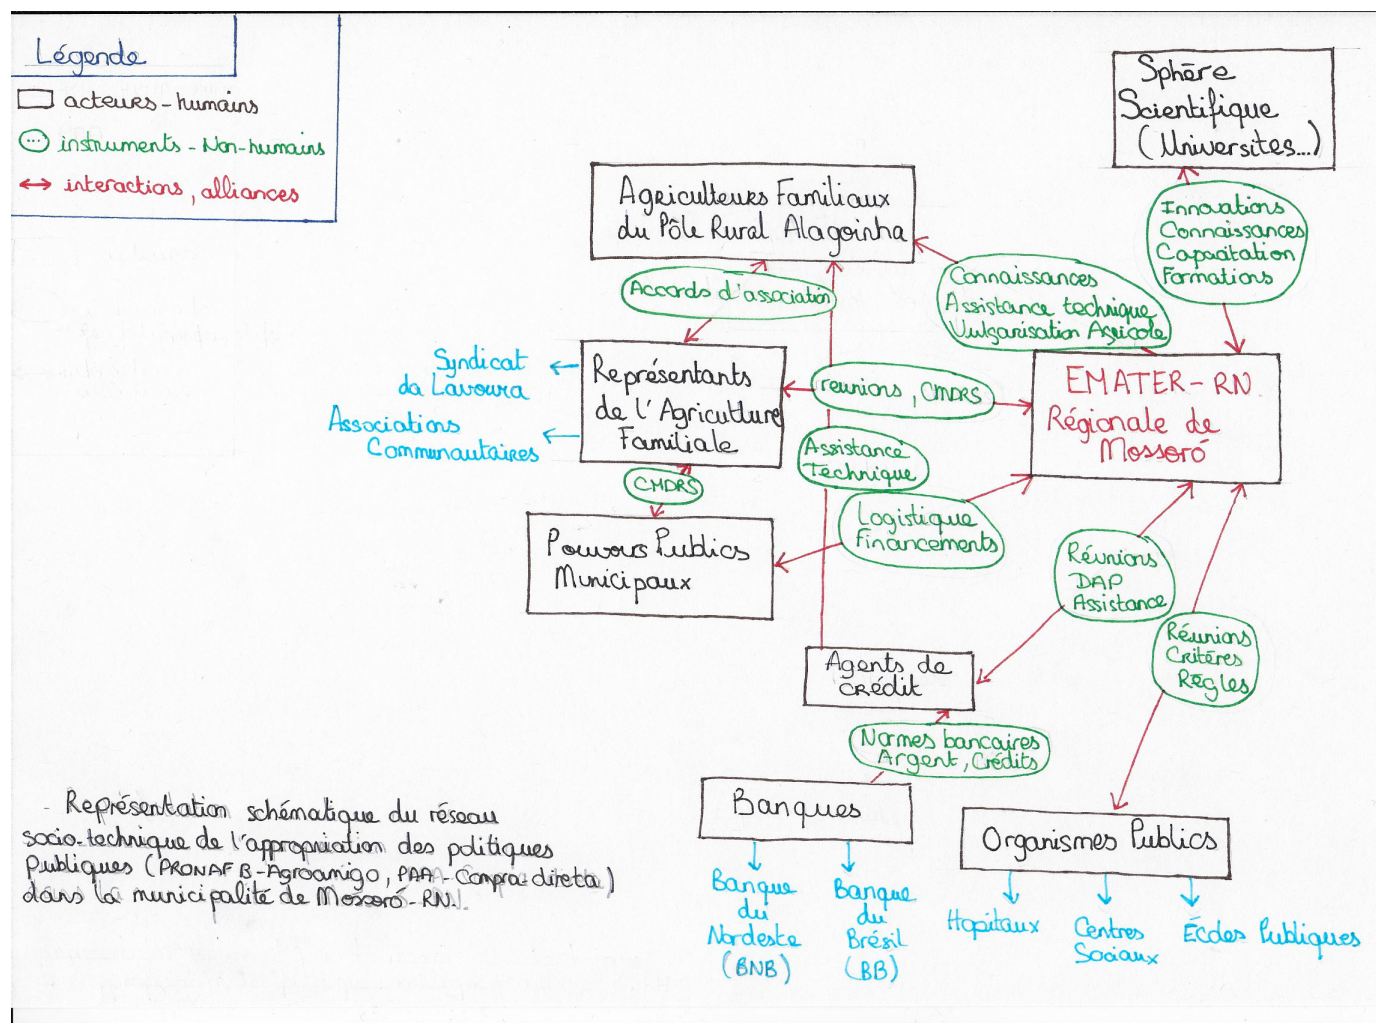 Légende
acteurs-humains
... instruments - Non-humains
interactions, alliances
Sphère
Scientifique
(Universites...)
Innovations
Connaissances
Capacitation
Formations
Agriculteurs Familiaux
du Pôle Rural Alagoinha
Accords d'association
Connaissances
Assistance technique
Vulgarisation Agricole
Syndicat
da Lavoura
Associations
Communautaires
Représentants
de l'Agriculture
Familiale
reunions, CMDRS
EMATER-RN
Régionale de
Mossoró
Assistance
Technique
CMDRS
Logistique
Financements
Pouvoirs Publics
Municipaux
Réunions
DAP
Assistance
Réunions
Critères
Règles
Agents de
crédit
Normes bancaires
Argent, Crédits
Banques
Organismes Publics
Banque
du
Nordeste
(BNB)
Banque
du
Brésil
(BB)
Hopitaux
Centres
Sociaux
Écoles Publiques
- Représentation schématique du réseau
socio-technique de l'appropriation des politiques
Publiques (PRONAF B-Agroamigo, PAA-Compra-direta)
dans la municipalité de Mossoró-RN.